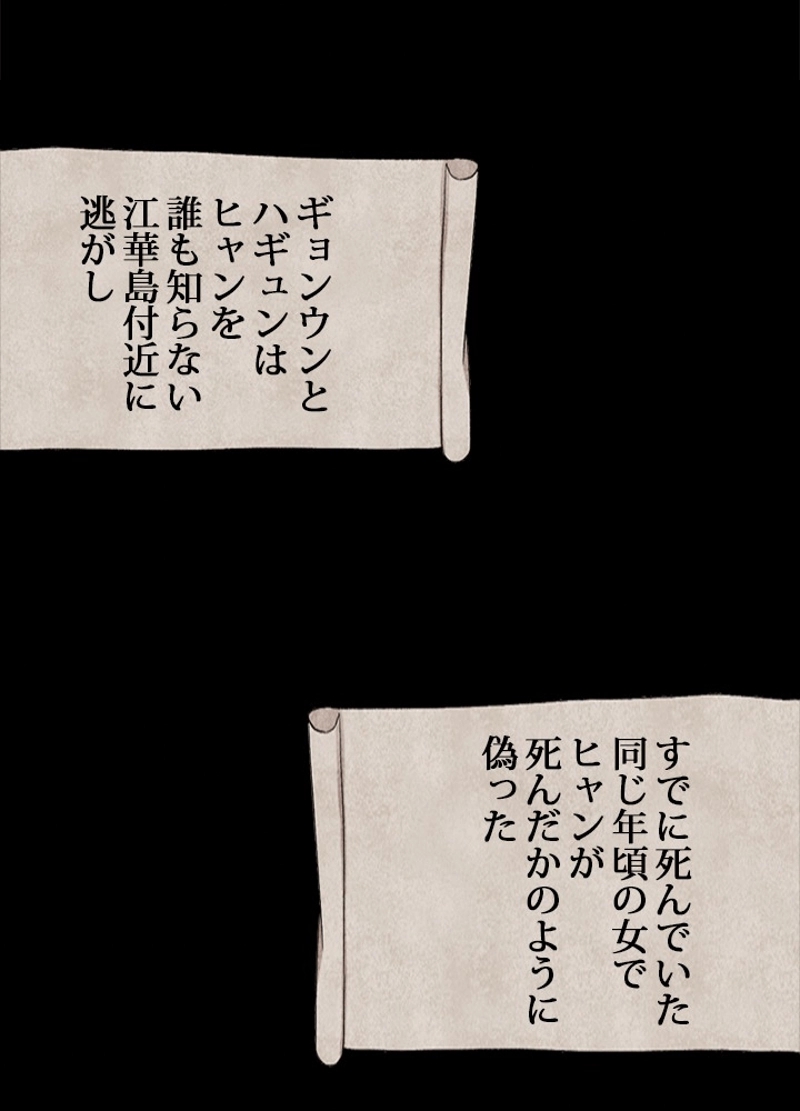 ギョンウンと
ハギュンは
ヒャンを
誰も知らない
江華島付近に
逃がし
すでに死んでいた
同じ年頃の女で
ヒャンが
死んだかのように
偽った